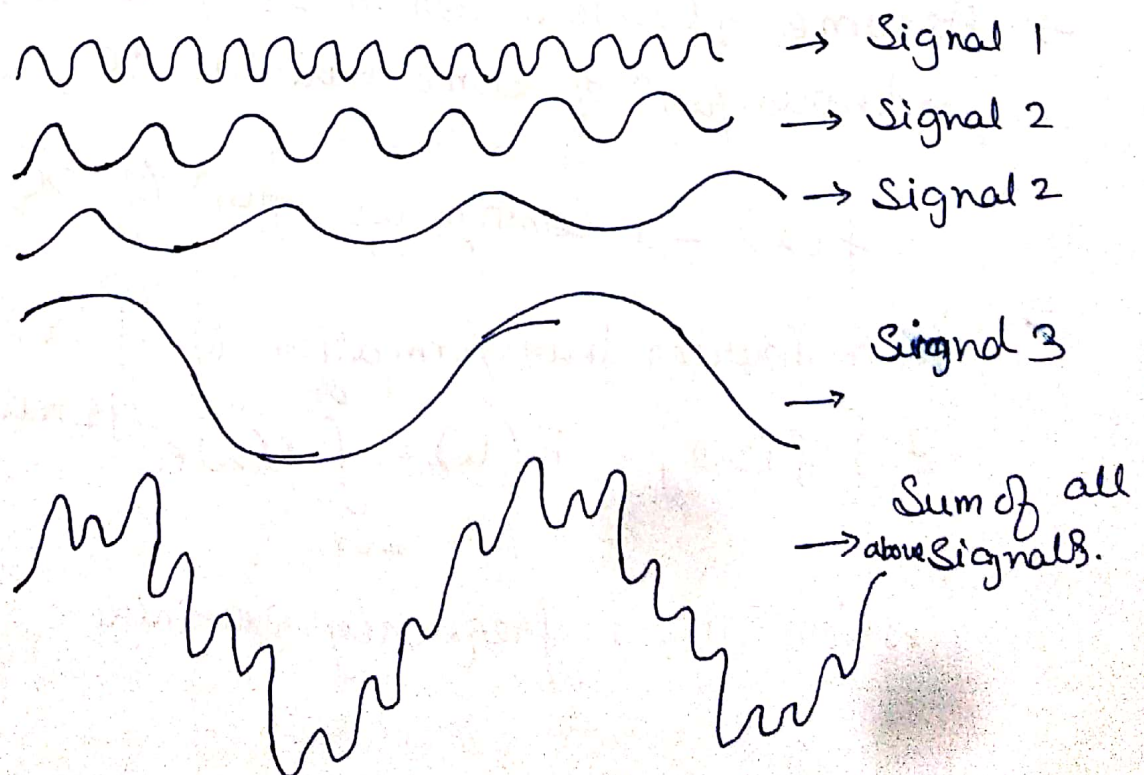 → Signal 1
→ Signal 2
→ Signal 2
→ Signal 3
Sum of all
→ above Signals.